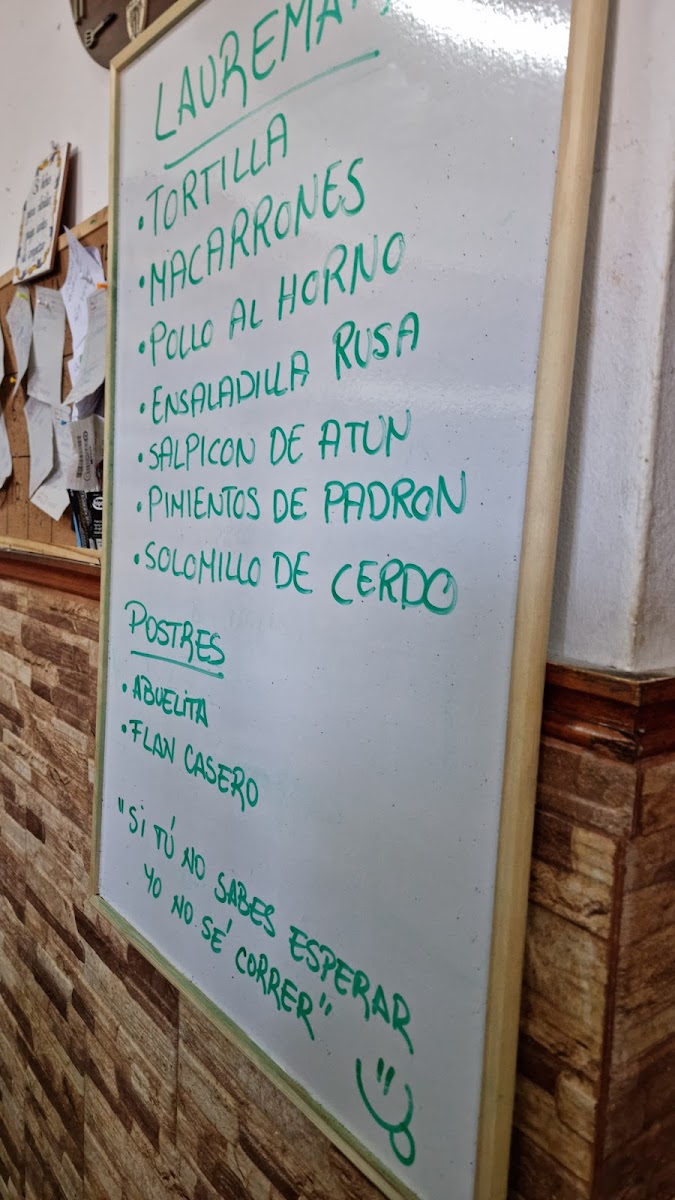 • TORTILLA
• MACARRONES
• POLLO AL HORNO
• ENSALADILLA RUSA
• SALPICON DE ATUN
• PIMIENTOS DE PADRON
• SOLOMILLO DE CERDO
POSTRES
• ABUELITA
• FLAN CASERO
"SI TÚ NO SABES ESPERAR
YO NO SÉ CORRER"